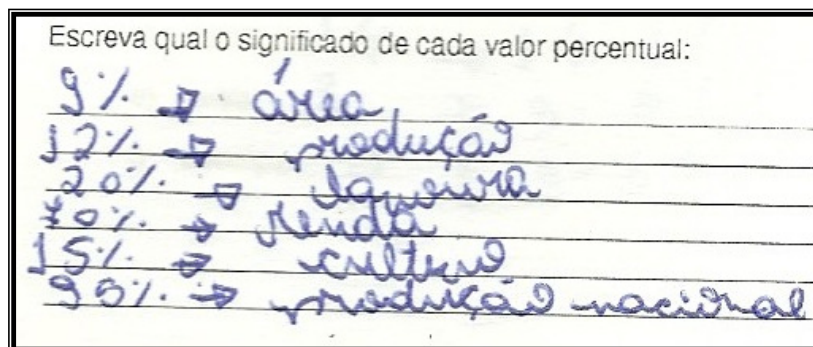 Escreva qual o significado de cada valor percentual:
9% → área
12% → produção
20% → lavoura
70% → renda
15% → cultivo
90% → produção nacional